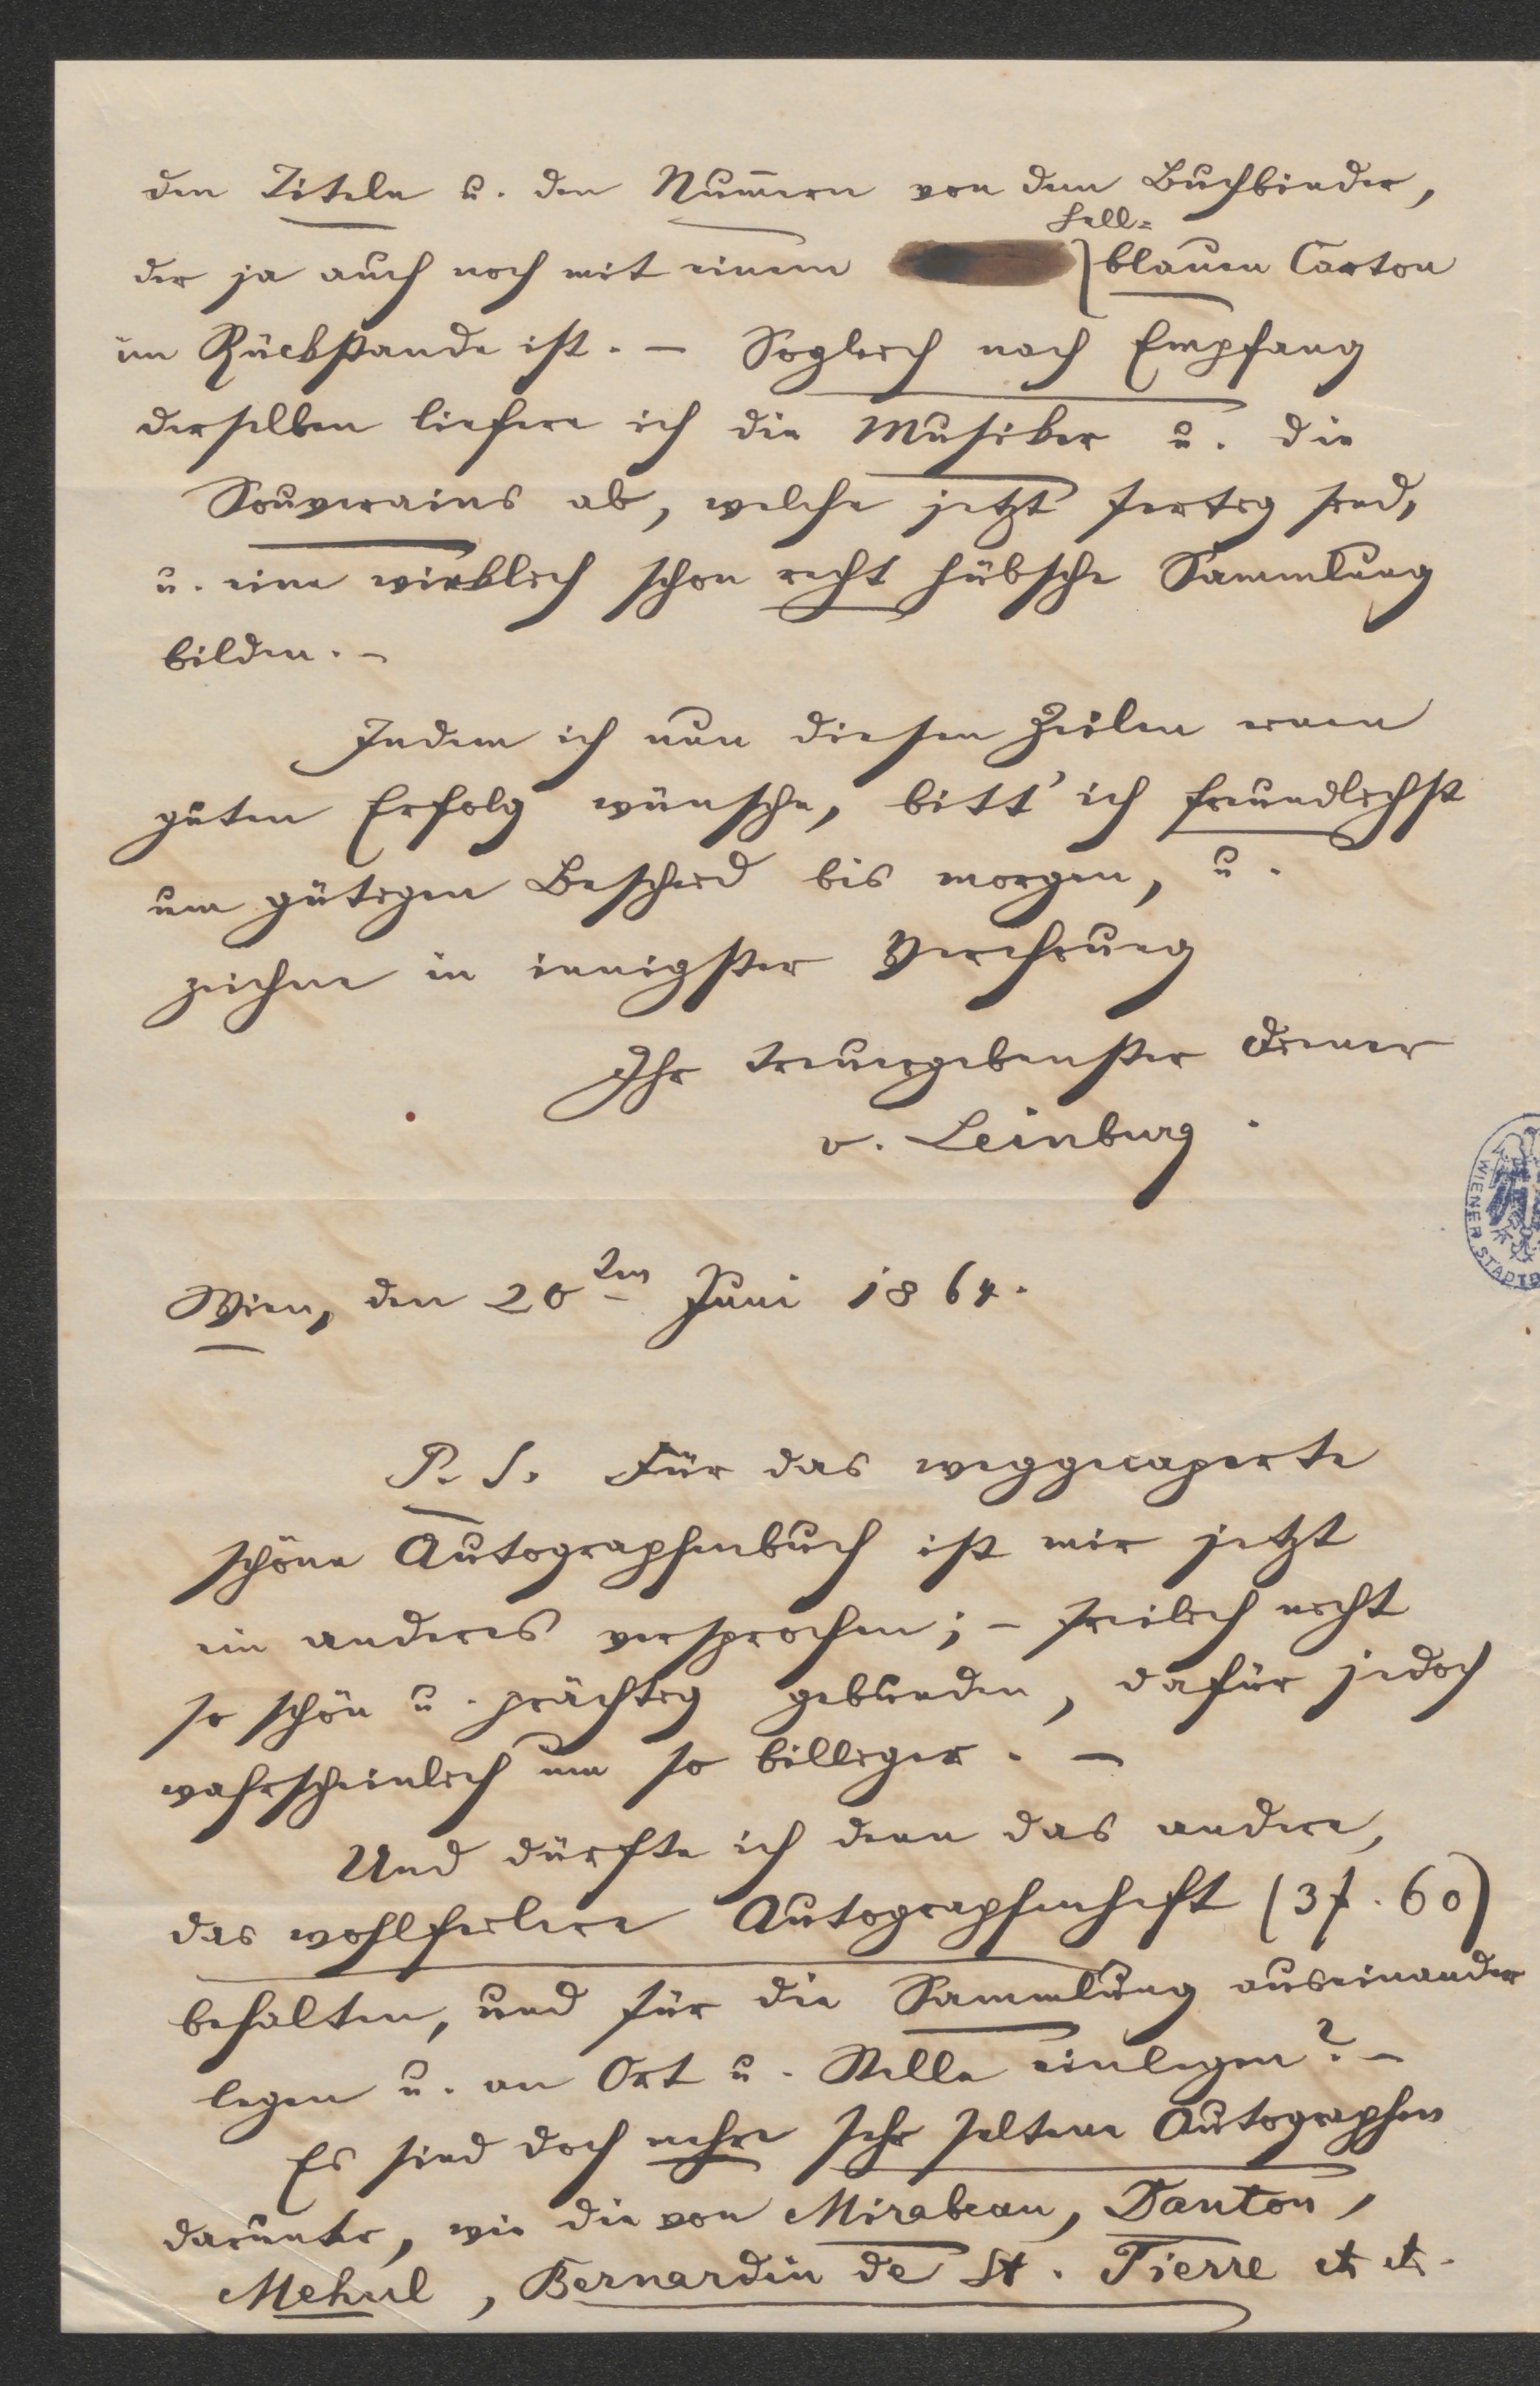 den Titeln u. den Num̄ern von dem Buchbinder,
hell=
der ja auch noch mit einem blauen Carton
im Rückstande ist. – Sogleich nach Empfang
derselben liefere ich die Musiker u. die
Souverains ab, welche jetzt fertig sind,
u. eine wirklich schon recht hübsche Sammlung
bilden. –
Indem ich nun diesen Zeilen einen
guten Erfolg wünsche, bitt' ich freundlichst
um gütigen Bescheid bis morgen, u.
zeichne in innigster Verehrung
Ihr treuergebenster Diener
v. Leinburg.
Wien, den 20ten Juni 1864.
P. S. Für das weggecaperte
schöne Autographenbuch ist mir jetzt
ein anderes versprochen; – freilich nicht
so schön u. prächtig gebunden, dafür jedoch
wahrscheinlich um so billiger. –
Und dürfte ich denn das andere,
das wohlfeilere Autographenheft (3f. 60)
behalten, und für die Sammlung auseinander
legen u. an Ort u. Stelle einlegen? –
Es sind doch mehre sehr seltene Autographen
darunter, wie die von Mirabeau, Danton,
Mehul, Bernardin de St. Pierre etc etc.
WIENER STADTB